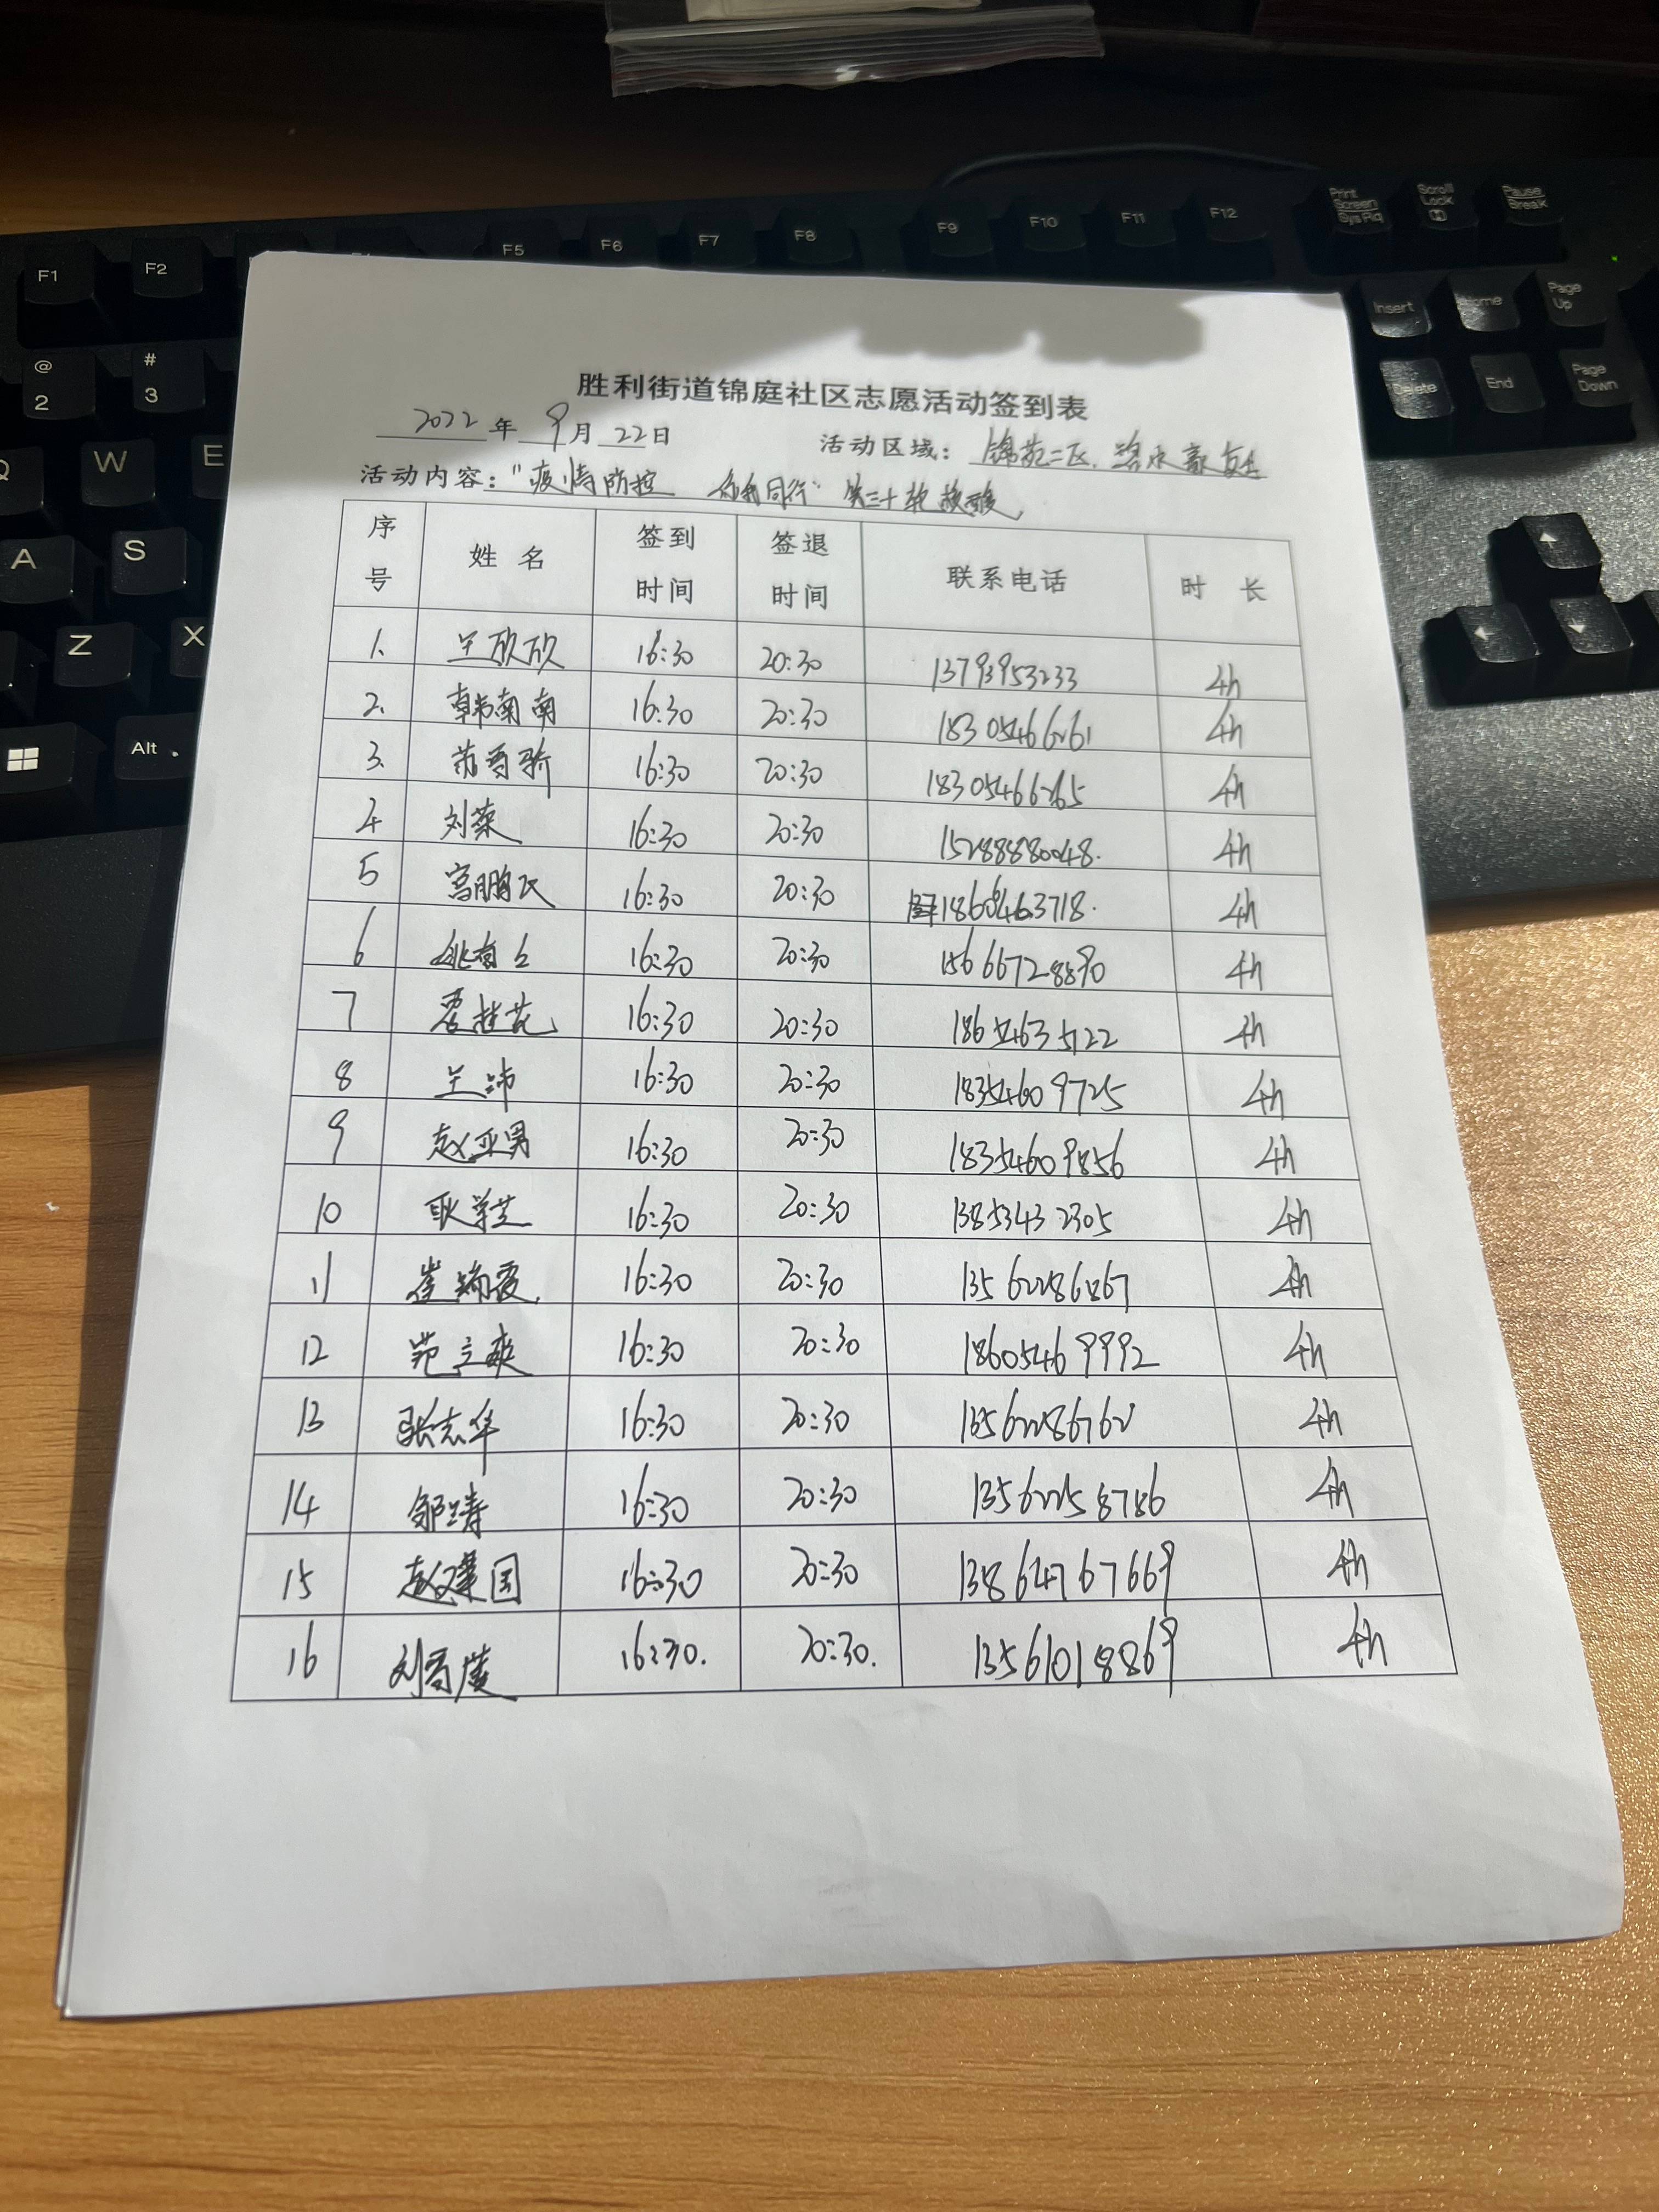 Print Screen SysRq
Scroll Lock
Pause Break
F1 F2 F5 F6 F7 F8 F9 F10 F11 F12
Insert Home Page Up
@ 2 # 3
Delete End Page Down
Q W E
A S
Z X
Alt
胜利街道锦庭社区志愿活动签到表
2022年 9月 22日 活动区域：锦苑二区、
活动内容："疫情防控 你我同行" 第三十轮核酸
序号 姓名 签到时间 签退时间 联系电话 时长
1. 王欣欣 16:30 20:30 13793953233 4h
2. 韩南南 16:30 20:30 18305466261 4h
3. 16:30 20:30 18305466265 4h
4 刘荣 16:30 20:30 15288880048. 4h
5 16:30 20:30 18605463718. 4h
6 16:30 20:30 15666728890 4h
7 16:30 20:30 18654635122 4h
8 王沛 16:30 20:30 18354609725 4h
9 赵亚男 16:30 20:30 18354609856 4h
10 耿学芝 16:30 20:30 13853432305 4h
11 崔瑞霞 16:30 20:30 13562286867 4h
12 范立爽 16:30 20:30 18605469992 4h
13 张志华 16:30 20:30 13562286762 4h
14 邹涛 16:30 20:30 13562258786 4h
15 赵建国 16:30 20:30 13864767669 4h
16 16:30. 20:30. 13561018869 4h